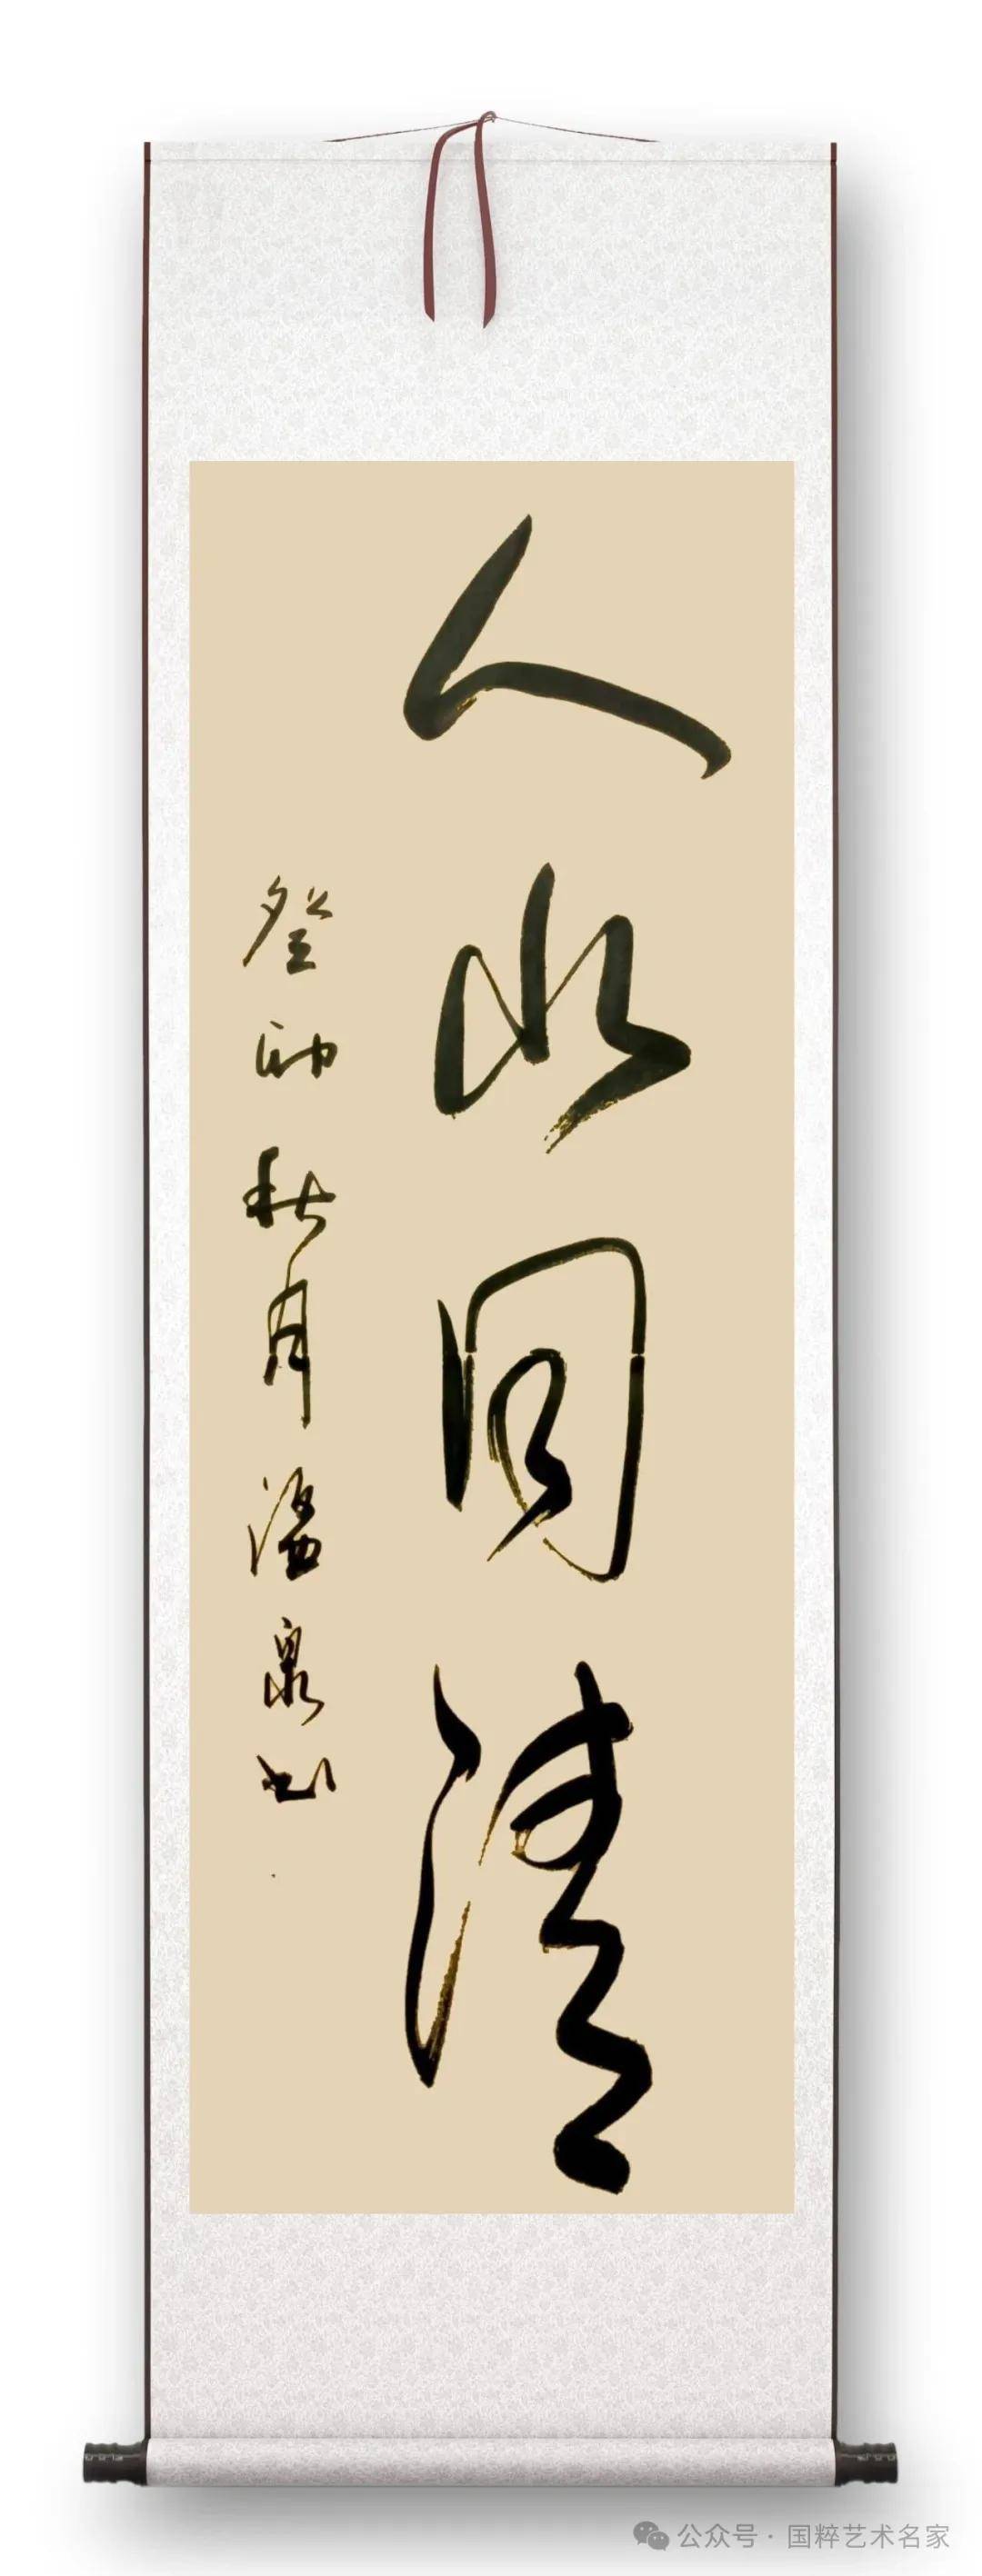 人水同清
癸卯秋月温泉书
公众号·国粹艺术名家